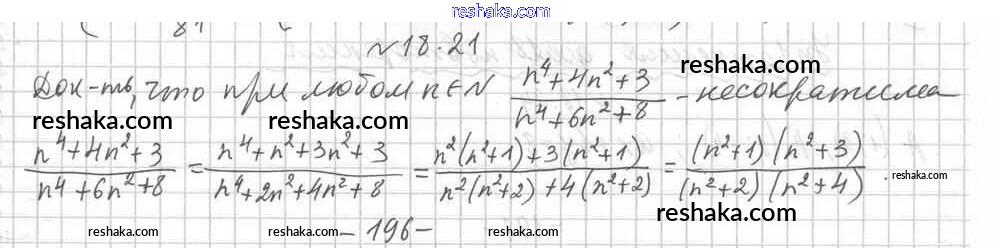 reshaka.com
№ 18.21
Док-ть, что при любом n∈N (n⁴+4n²+3)/(n⁴+6n²+8) - несократима
reshaka.com
reshaka.com reshaka.com
(n⁴+4n²+3)/(n⁴+6n²+8) = (n⁴+n²+3n²+3)/(n⁴+2n²+4n²+8) = (n²(n²+1)+3(n²+1))/(n²(n²+2)+4(n²+2)) = ((n²+1)(n²+3))/((n²+2)(n²+4)).
reshaka.com
reshaka.com reshaka.com - 196 - reshaka.com reshaka.com